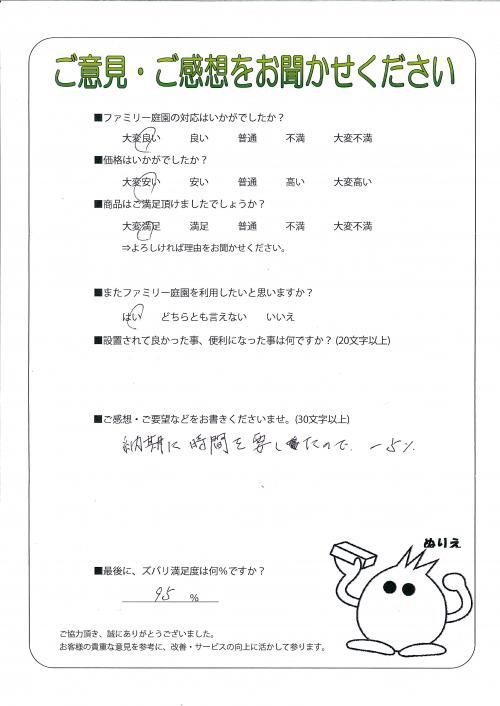 ご意見・ご感想をお聞かせください
■ファミリー庭園の対応はいかがでしたか？
大変良い 良い 普通 不満 大変不満
■価格はいかがでしたか？
大変安い 安い 普通 高い 大変高い
■商品はご満足頂けましたでしょうか？
大変満足 満足 普通 不満 大変不満
⇒よろしければ理由をお聞かせください。
■またファミリー庭園を利用したいと思いますか？
はい どちらとも言えない いいえ
■設置されて良かった事、便利になった事は何ですか？(20文字以上)
■ご感想・ご要望などをお書きくださいませ。(30文字以上)
納期に時間を要したので、-5%
ぬりえ
■最後に、ズバリ満足度は何％ですか？
95 %
ご協力頂き、誠にありがとうございました。
お客様の貴重な意見を参考に、改善・サービスの向上に活かして参ります。